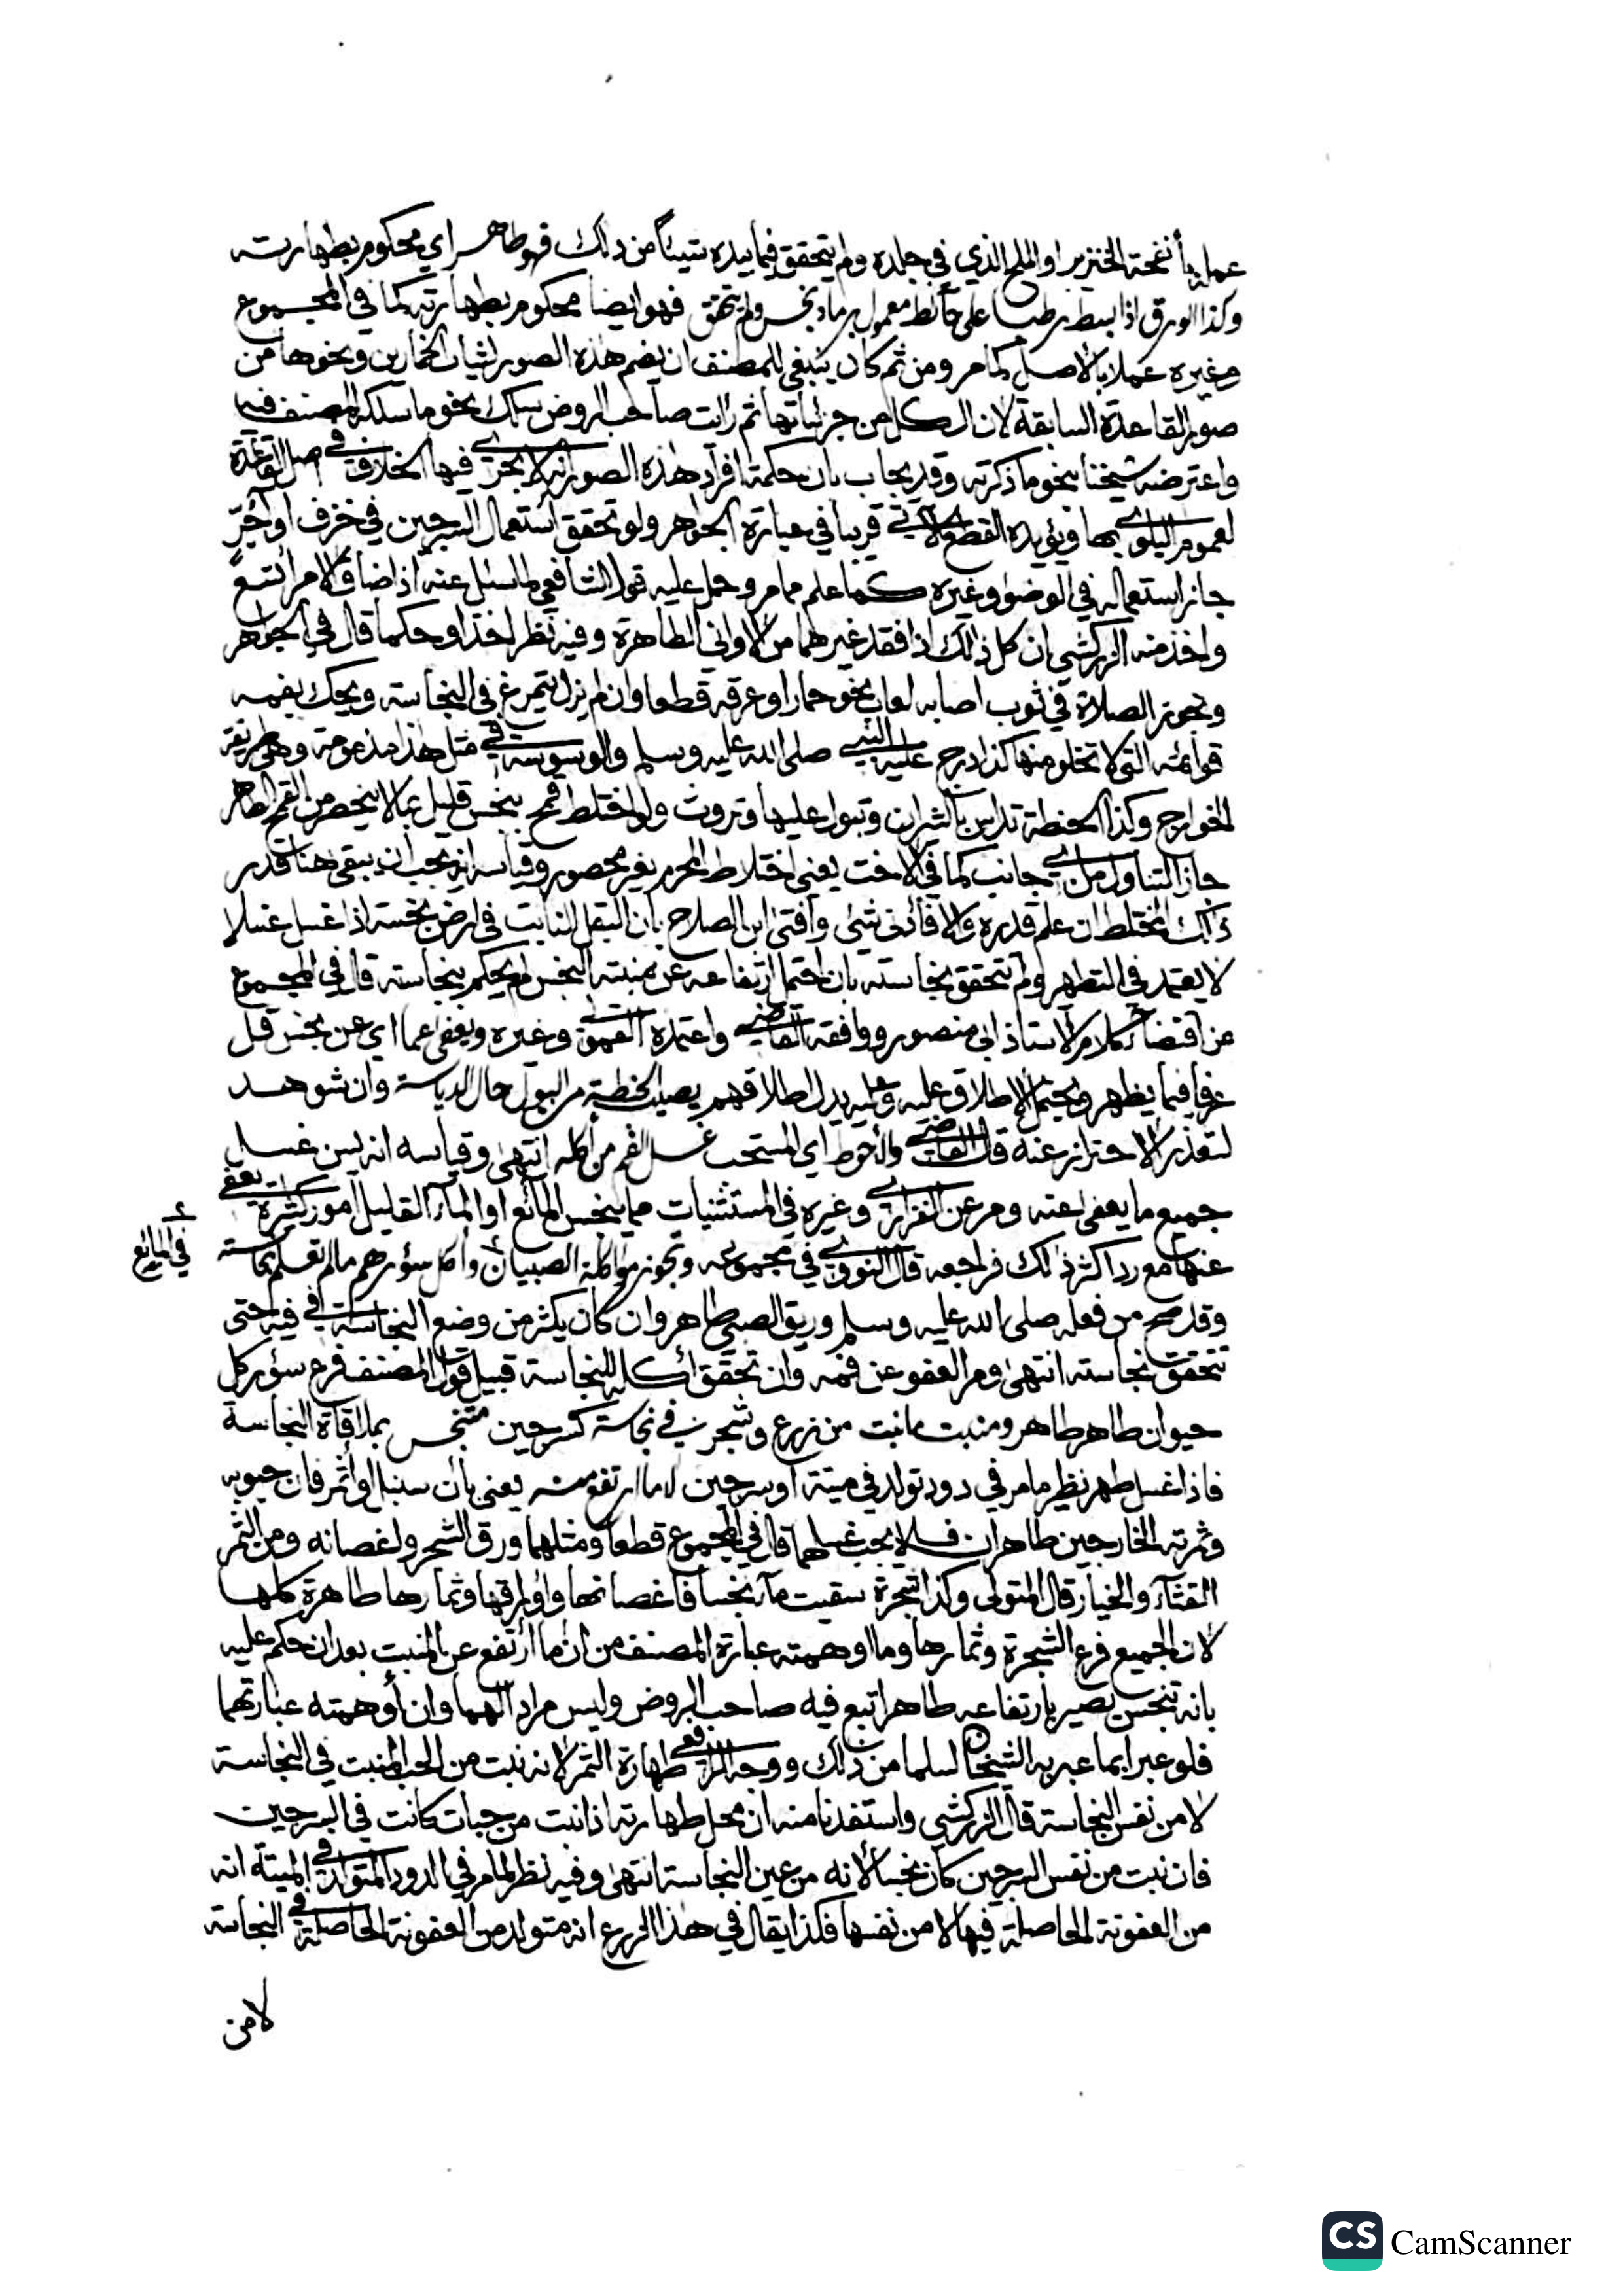 عمله بأنفحة الخنزير او الملح الذي في جلده ولم يتحقق فيما بيده شيئا من ذلك فهو طاهر اي محكوم بطهارته
وكذا الورق اذا بسط رطبا على حائط معمول برماد نجس ولم يتحقق فهو ايضا محكوم بطهارته كما في المجموع
وغيره عملا بالاصل كما مر ومن ثم كان ينبغي للمصنف ان يضم هذه الصور لثياب الخمارين ونحوها من
صور القاعدة السابقة لان الكل من جزئياتها ثم رايت صاحب الروض سلك نحو ما سلكه المصنف فيه
واعترضه شيخنا بنحو ما ذكرته وقد يجاب بان حكمة افراد هذه الصور انه لا يجري فيها الخلاف في اصل القاعدة
لعموم البلوى بها ويؤيده القطع الآتي قريبا في عبارة الجواهر ولو تحقق استعمال السرجين في خزف او آجر
جاز استعماله في الوضوء وغيره كما علم مما مر وحمل عليه قول الشافعي لما سئل عنه اذا ضاق الامر اتسع
واخذ منه الزركشي ان كل ذلك اذا فقد غيرهما من الاواني الطاهرة وفيه نظر اخذا وحكما قال في الجواهر
وتجوز الصلاة في ثوب اصابه لعاب نحو حمار او عرقه قطعا وان لم يزل يتمرغ في النجاسة ويحك بفمه
قوائمه التي لا تخلو منها كذا درج عليه النبي صلى الله عليه وسلم والوسوسة في مثل هذا مذمومة وهي طريقة
الخوارج وكذا الحنطة تداس بالثيران وتبول عليها وتروث ولو اختلط قمح بنجس قليل بما لا ينحصر من القمح الطاهر
جاز التناول من اي جانب كما في الاخت يعني اختلاط المحرم بغير محصور وقياسه انه يجب ان يبقى هنا قدر
ذلك المختلط ان علم قدره والا فأدنى شئ وأفتى ابن الصلاح بأن البقل النابت في ارض نجسة اذا غسل غسلا
لا يعتمد في التطهير ولم تتحقق نجاسته بان احتمل ارتفاعه عن منبته النجس لم يحكم بنجاسته قال في المجموع
عن اقتضاء كلام الاستاذ ابي منصور ووافقه القاضي واعتمده القمولي وغيره ويعفى عما اي عن نجس قل
عرفا فيما يظهر ويحتمل الاطلاق عليه وعليه يدل اطلاقهم يصيب الحنطة من البول حال الدياسة وان شوهد
لتعذر الاحتراز عنه قال القاضي والاحوط اي المستحب غسل الفم من أكله انتهى وقياسه انه يسن غسل
جميع ما يعفى عنه ومر عن الفزاري وغيره في المستثنيات مما ينجس المائع او الماء القليل امور كثيرة يعفى
في المائع
عنها مع رد اكثر ذلك فراجعه قال النووي في مجموعه وتجوز مواكلة الصبيان وأكل سؤرهم ما لم تعلم نجاسته
وقد صح من فعله صلى الله عليه وسلم وريق الصبي طاهر وان كان يكثر من وضع النجاسة في فيه حتى
تتحقق نجاسته انتهى ومر العفو عن فمه وان تحقق أكله للنجاسة قبيل قول المصنف فرع سؤر كل
حيوان طاهر طاهر ومنبت ما نبت من زرع وشجر في نجاسة كسرجين متنجس بملاقاة النجاسة
فاذا غسل طهر نظير ما مر في دود تولد في ميتة او سرجين لا ما ارتفع منه يعني بأن سنبل او أثمر فان حبوبه
وثمرته الخارجين طاهران فلا يجب غسلهما قال في المجموع قطعا ومثلهما ورق الشجر ولغصانه ومن الثمر
القثاء والخيار قال المتولي وكذا شجرة سقيت ماء نجسا فاغصانها واوراقها وثمارها طاهرة كلها
لان الجميع فرع الشجرة وثمارها وما اوهمته عبارة المصنف من ان ما ارتفع عن المنبت بعد ان حكم عليه
بانه تنجس يصير بارتفاعه طاهرا تبع فيه صاحب الروض وليس مرادا لهما وان أوهمته عبارتهما
فلو عبرا بما عبر به الشيخان لسلما من ذلك ووجه الرافعي طهارة الثمر لانه نبت من الحب المنبت في النجاسة
لا من نفس النجاسة قال الزركشي واستفدنا منه ان محل طهارته اذا نبت من حبات كانت في السرجين
فان نبت من نفس السرجين كان نجسا لأنه من عين النجاسة انتهى وفيه نظر لما مر في الدود المتولد في الميتة انه
من العفونة الحاصلة فيها لا من نفسها فكذا يقال في هذا الزرع انه متولد من العفونة الحاصلة في النجاسة
لا من
CS CamScanner